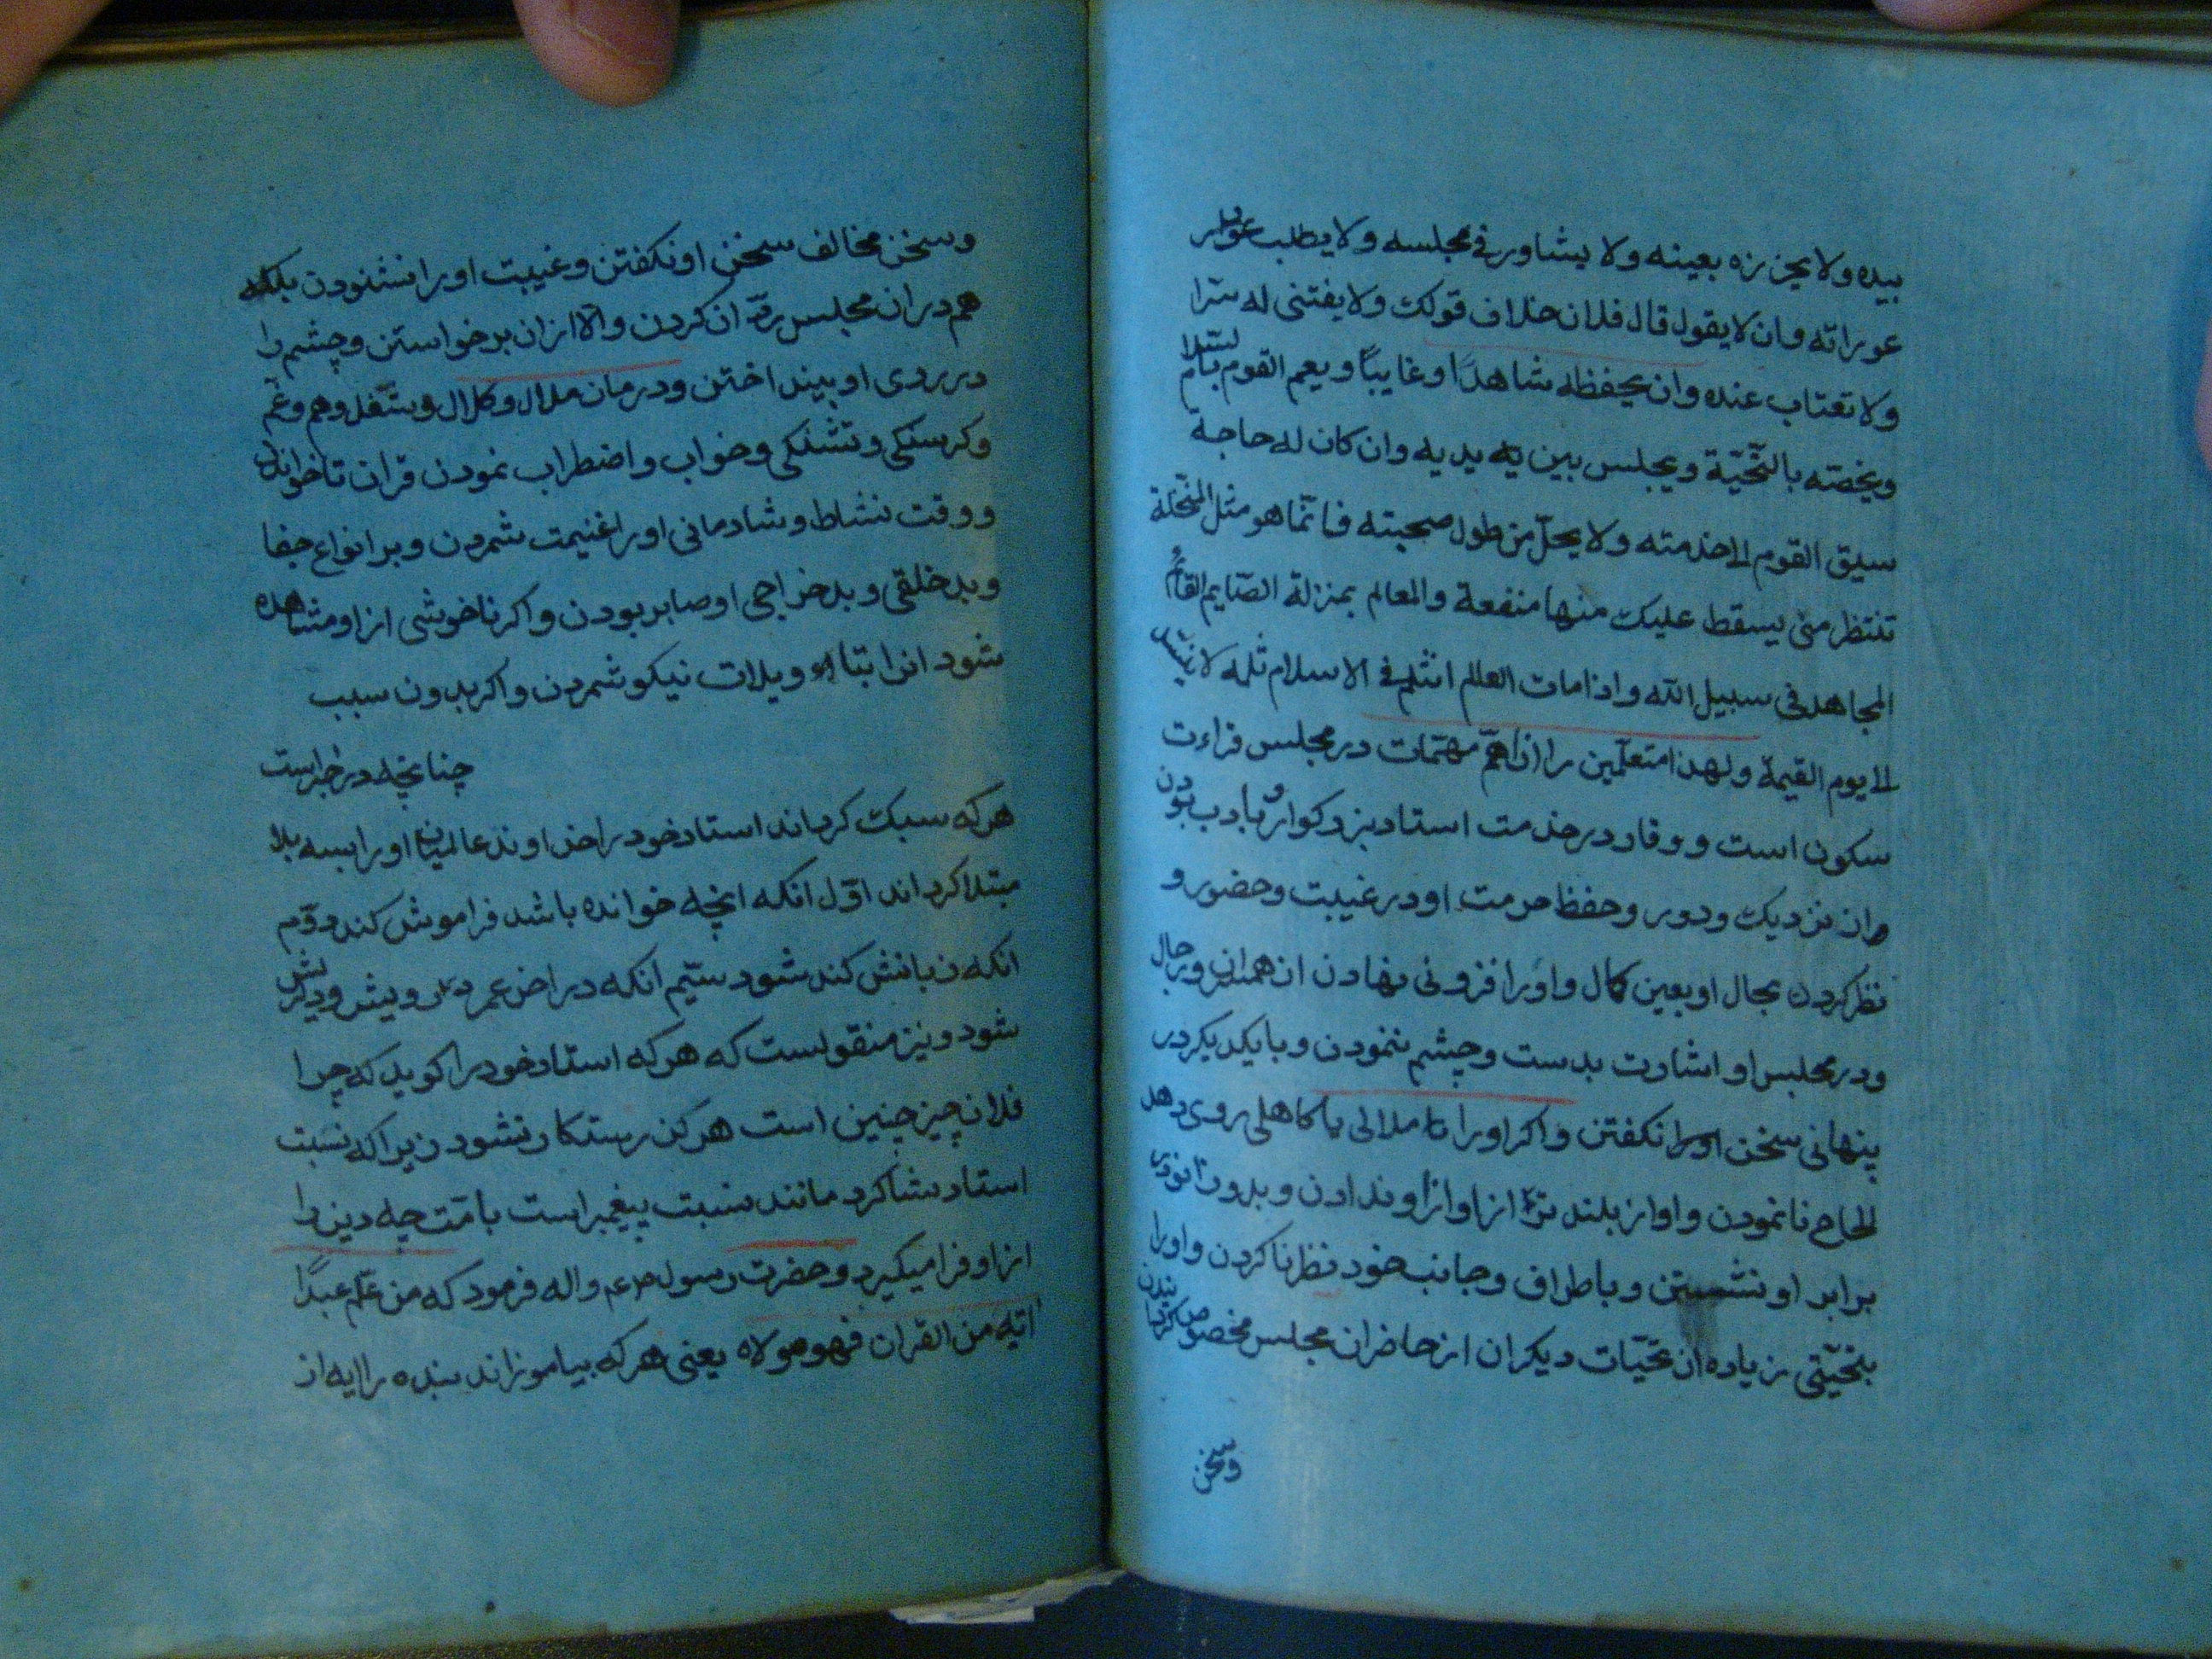 بیده ولا یحزره بعینه ولا یشاور فی مجلسه ولا یطلب
عوراته وان لا یقول قال فلان خلاف قولک ولا یفتنی له سرا
ولا تعتاب عنده وان یحفظه شاهدًا وغایبًا ویعم القوم بالسلام
ویخصّه بالتّحیّة ویجلس بین یدیه وان کان له حاجة
سبق القوم الی خدمته ولا یحلّ من طول صحبته فانّما هو مثل النّخلة
تنتظر متی یسقط علیک منها منفعة والعالم بمنزلة الصّایم القائم
المجاهد فی سبیل الله واذا مات العالم انثلم فی الاسلام ثلمه لا
الی یوم القیمة ولهذا متعلّمین را از اهمّ مهمّات در مجلس قراءت
سکون است و وقار در خدمت استاد بزرکوار و با ادب بودن
وان نزدیک ودور وحفظ حرمت او در غیبت وحضور و
نظر کردن بجال او بعین کمال واو را افزونی نهادن از همسران
ودر مجلس او اشارت بدست وچشم ننمودن وبا یکدیکر در
پنهانی سخن او را نکفتن واکر او را ملالی یا کاهلی روی دهد
الحاح نا نمودن واواز بلند تر از اواز او ندادن وبدون
برابر او ننشستن وباطراف وجانب خود نظر نا کردن واو را
بتحیّتی زیاده از تحیّات دیکران از حاضران مجلس مخصوص کردانیدن
وسخن
وسخن مخالف سخن او نکفتن وغیبت او را نشنودن بلکه
هم در ان مجلس ردّ ان کردن والا از ان برخواستن وچشم را
در روی او بینداختن ودر زمان ملال وکلال وشغل وهم وغم
وکرسنکی وتشنکی وخواب واضطراب نمودن قران نا خواندن
ووقت نشاط وشادمانی او را غنیمت شمردن وبر انواع جفا
وبد خلقی وبد خراجی او صابر بودن واکر نا خوشی از او مشاهده
شود انرا بتاءویلات نیکو شمردن واکر بدون سبب
چنانچه در خبر است
هر که سبک کرداند استاد خود را خداوند عالمیان او را بسه بلا
مبتلا کرداند اوّل انکه انچه خوانده باشد فراموش کند دوّم
انکه زبانش کند شود سیّم انکه در اخر عمر درویش
شود ونیز منقولست که هر که استاد خود را کوید که چرا
فلان چیز چنین است هرکز رستکار نشود زیرا که نسبت
استاد بشاکرد مانند نسبت پیغمبر است بامّت چه دین را
از او فرا میکیرد وحضرت رسول صلعم واله فرمود که من علّم عبدًا
ایّه من القران فهو مولاه یعنی هر که بیاموزاند بنده را ایه از